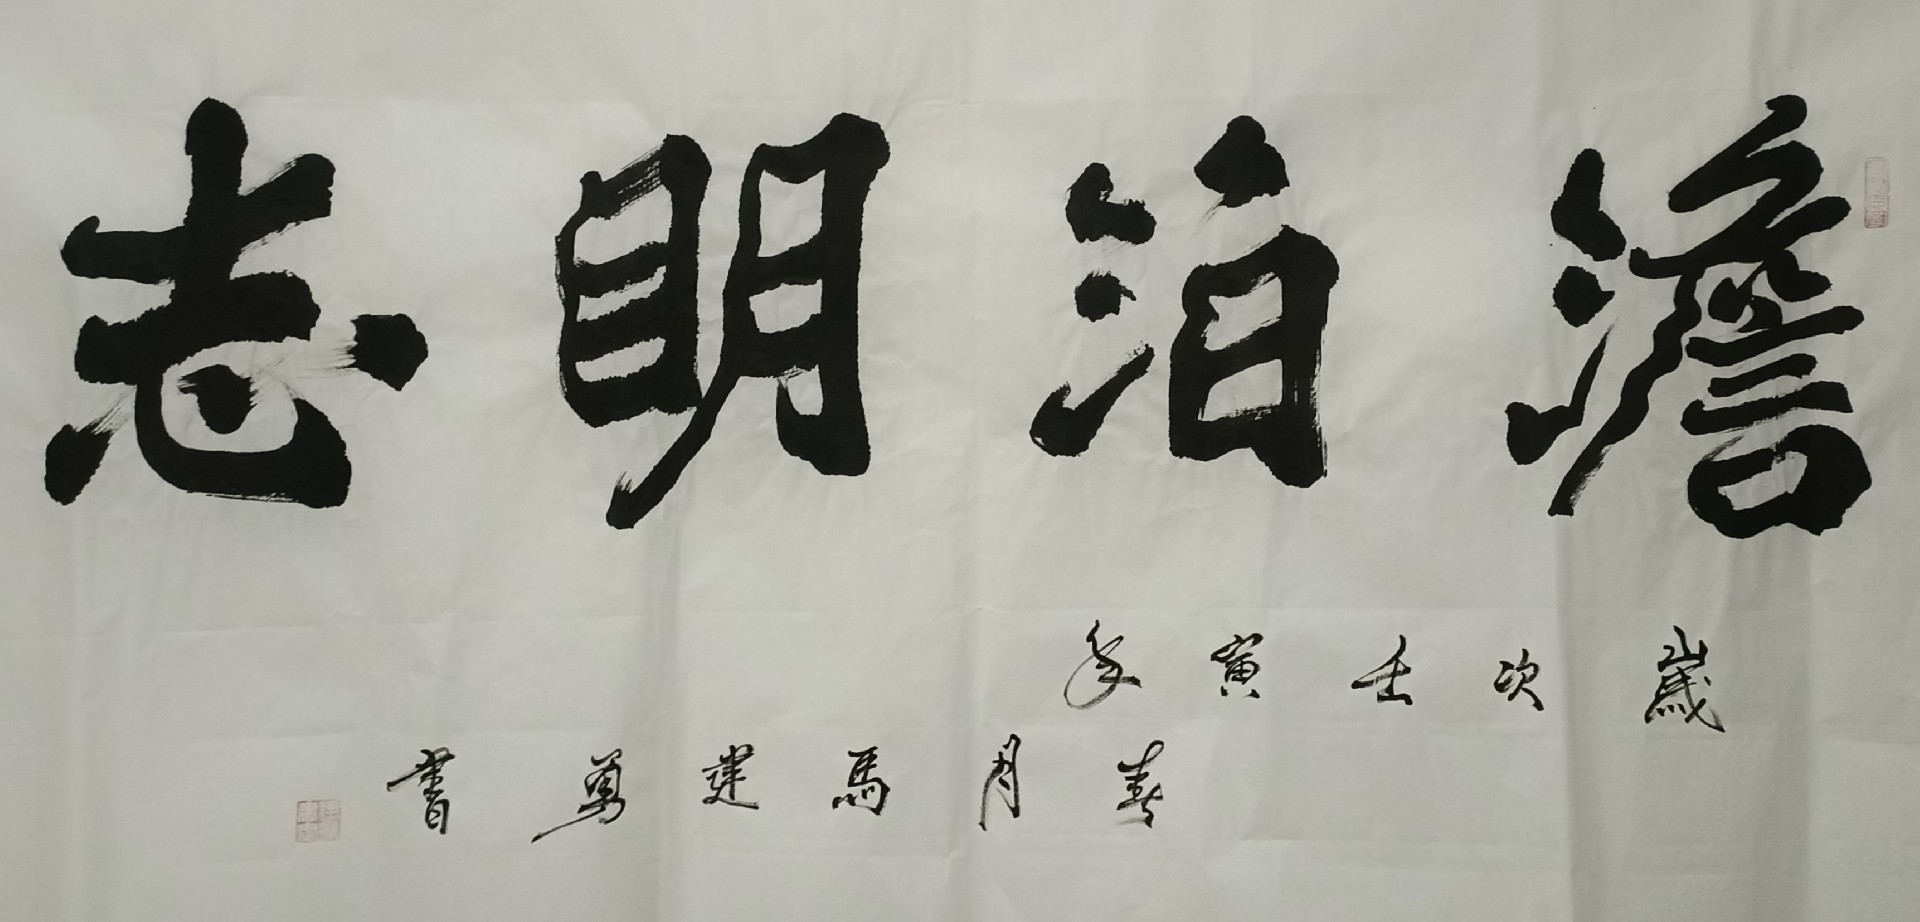 澹泊明志
歲次壬寅年
春月馬建勇書